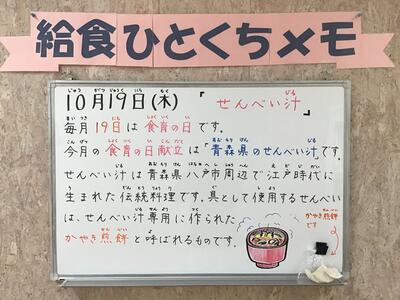 給食ひとくちメモ
10月19日(木) 「せんべい汁」
毎月19日は食育の日です。
今月の食育の日献立は「青森県のせんべい汁」です。
せんべい汁は青森県八戸市周辺で江戸時代に
生まれた伝統料理です。具として使用するせんべい
は、せんべい汁専用に作られた
かやき煎餅と呼ばれるものです。
かやき煎餅
です